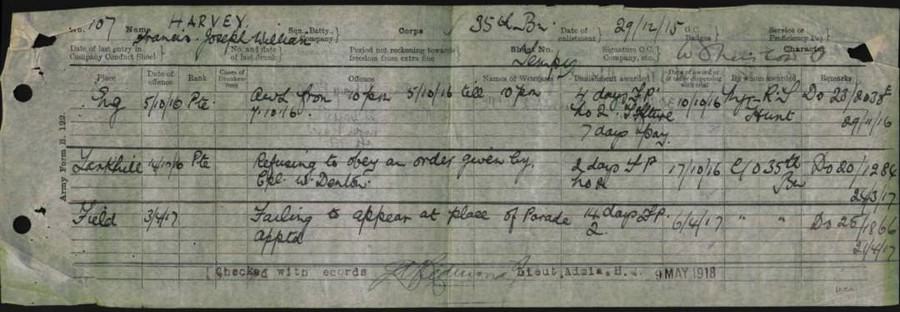 No. 107 Name HARVEY. Sqn., Batty., Company Corps 35th Bn. Date of enlistment 29/12/15 G.C. Badges Service or Proficiency Pay
Francis Joseph William
Date of last entry in Company Conduct Sheet No. and date of last drunk Period not reckoning towards freedom from extra fine Sheet No. Signature O.C. Company, etc. Character
Place Date of offence Rank Cases of Drunkenness Offence Names of Witnesses Punishment awarded Date of award or of order dispensing with trial By whom awarded Remarks
Eng 5/10/16 Pte. AWL from 10 pm 5/10/16 till 10 pm 4 days F P 10/10/16 Do 23/2038
7.10.16. no 2. Hunt 29/11/16
7 days pay
Larkhill Pte Refusing to obey an order given by 2 days F P 17/10/16 C/O 35th Do 20/1284
Cpl. W. Denton. no 2 Bn 24/3/17
Field 3/4/17 Failing to appear at place of Parade 14 days F.P. 6/4/17 " " Do 25/1866
apptd 2. 21/4/17
Checked with ecords Lieut. 9 MAY 1918
Army Form B. 122.